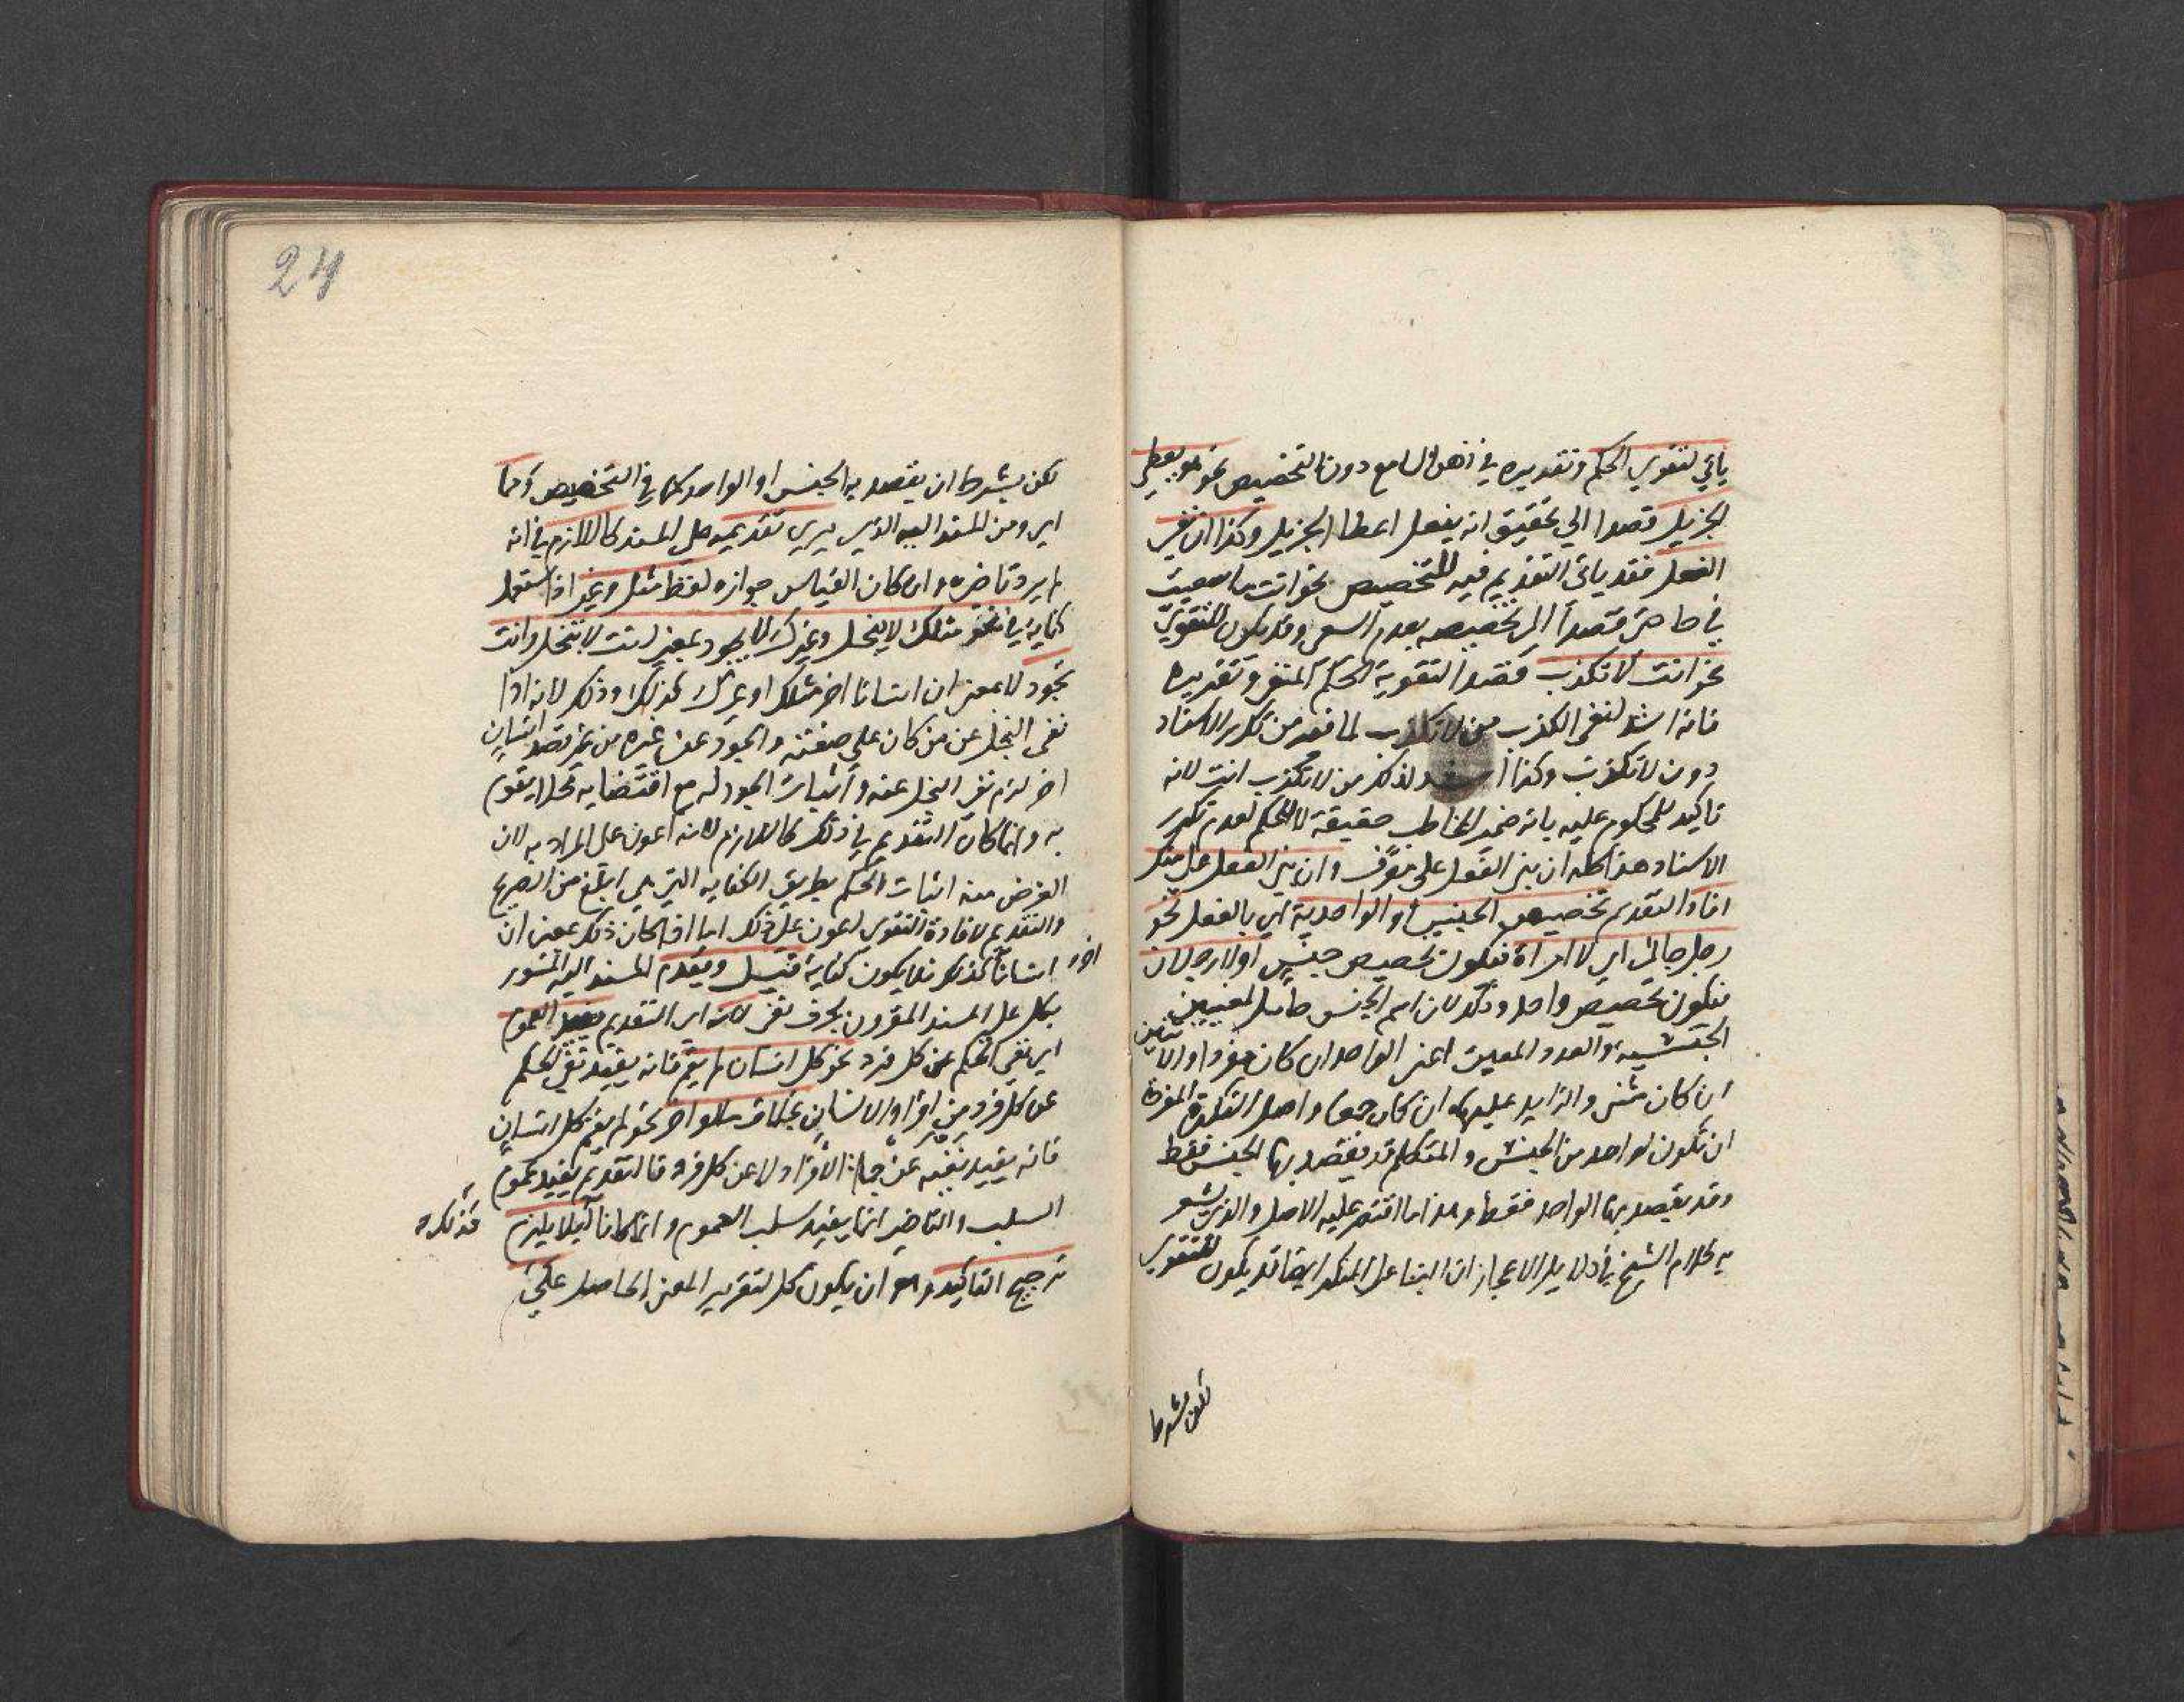 ياتي لتقوي الحكم وتقديره في ذهن السامع دون التخصيص نحو هو يعطي
الجزيل قصدا الي تحقيق انه يفعل اعطا الجزيل وكذا ان نفي
الفعل فقد ياتي التقديم فيه للتخصيص نحو انت ما سعيت
في حاجتي قصدا الي تخصيصه بعدم السعي وقد يكون للتقوي
نحو انت لا تكذب قصدا لتقوية الحكم المنفي وتقديره
فانه اشد لنفي الكذب من لا تكذب لما فيه من تكرر الاسناد
دون لا تكذب وكذا اشد لذلك من لا تكذب انت لانه
تاكيد للمحكوم عليه بانه ضمير المخاطب حقيقة لا للحكم لعدم تكرر
الاسناد هذا كله ان بني الفعل على معرف وان بني الفعل على منكر
افاد التقديم تخصيص الجنس او الواحد به اي بالفعل نحو
رجل جاني اي لا امراة فيكون تخصيص جنس او لا رجلان
فيكون تخصيص واحد وذلك لان اسم الجنس حامل لمعنيين
الجنسية والعدد المعين اعني الواحد ان كان مفردا والاثنين
ان كان مثنى والزايد عليه ان كان جمعا واصل النكرة المفردة
ان تكون لواحد من الجنس والمتكلم قد يقصد بها الجنس فقط
وقد يقصد بها الواحد فقط وهذا ما اقتصر عليه الاصل والذي يشعر
به كلام الشيخ في دلايل الاعجاز ان البنا على المنكر ايضا قد يكون للتقوي
لكن بشرط
24
لكن بشرط ان يقصد به الجنس او الواحد كما في التخصيص ومما
اي ومن المسند اليه الذي يري تقديمه على المسند كاللازم في انه
لم يرد تاخيره وان كان القياس جوازه لفظ مثل وغير اذا استعمل
كناية في نحو مثلك لا يبخل وغيرك لا يجود بمعني انت لا تبخل وانت
تجود لا بمعني ان انسانا اخر مثلك او غيرك كذلك وذلك لانه اذا
نفي البخل عن من كان على صفته والجود عن غيره من غير قصد انسان
اخر لزم نفي البخل عنه واثبات الجود له مع اقتضايه محلا يقوم
به وانما كان التقديم في ذلك كاللازم لانه اعون على المراد به لان
الغرض منه اثبات الحكم بطريق الكناية التي هي ابلغ من الصريح
والتقديم لافادة التقوي اعون على ذلك اما اذا كان ذلك بمعني ان
انسانا اخر كذلك فلا يكون كناية قيل ويقدم المسند اليه المسور
بكل على المسند المقرون بحرف نفي لانه اي التقديم يفيد العموم
اي نفي الحكم عن كل فرد نحو كل انسان لم يقم فانه يفيد نفي الحكم
عن كل فرد من افراد الانسان بخلاف ما لو اخر نحو لم يقم كل انسان
فانه يفيد نفيه عن جملة الافراد لا عن كل فرد فالتقديم يفيد عموم
السلب والتاخير انما يفيد سلب العموم وانما كانا كذلك ليلا يلزم
ترجيح التاكيد وهو ان يكون كل لتقرير المعني الحاصل على